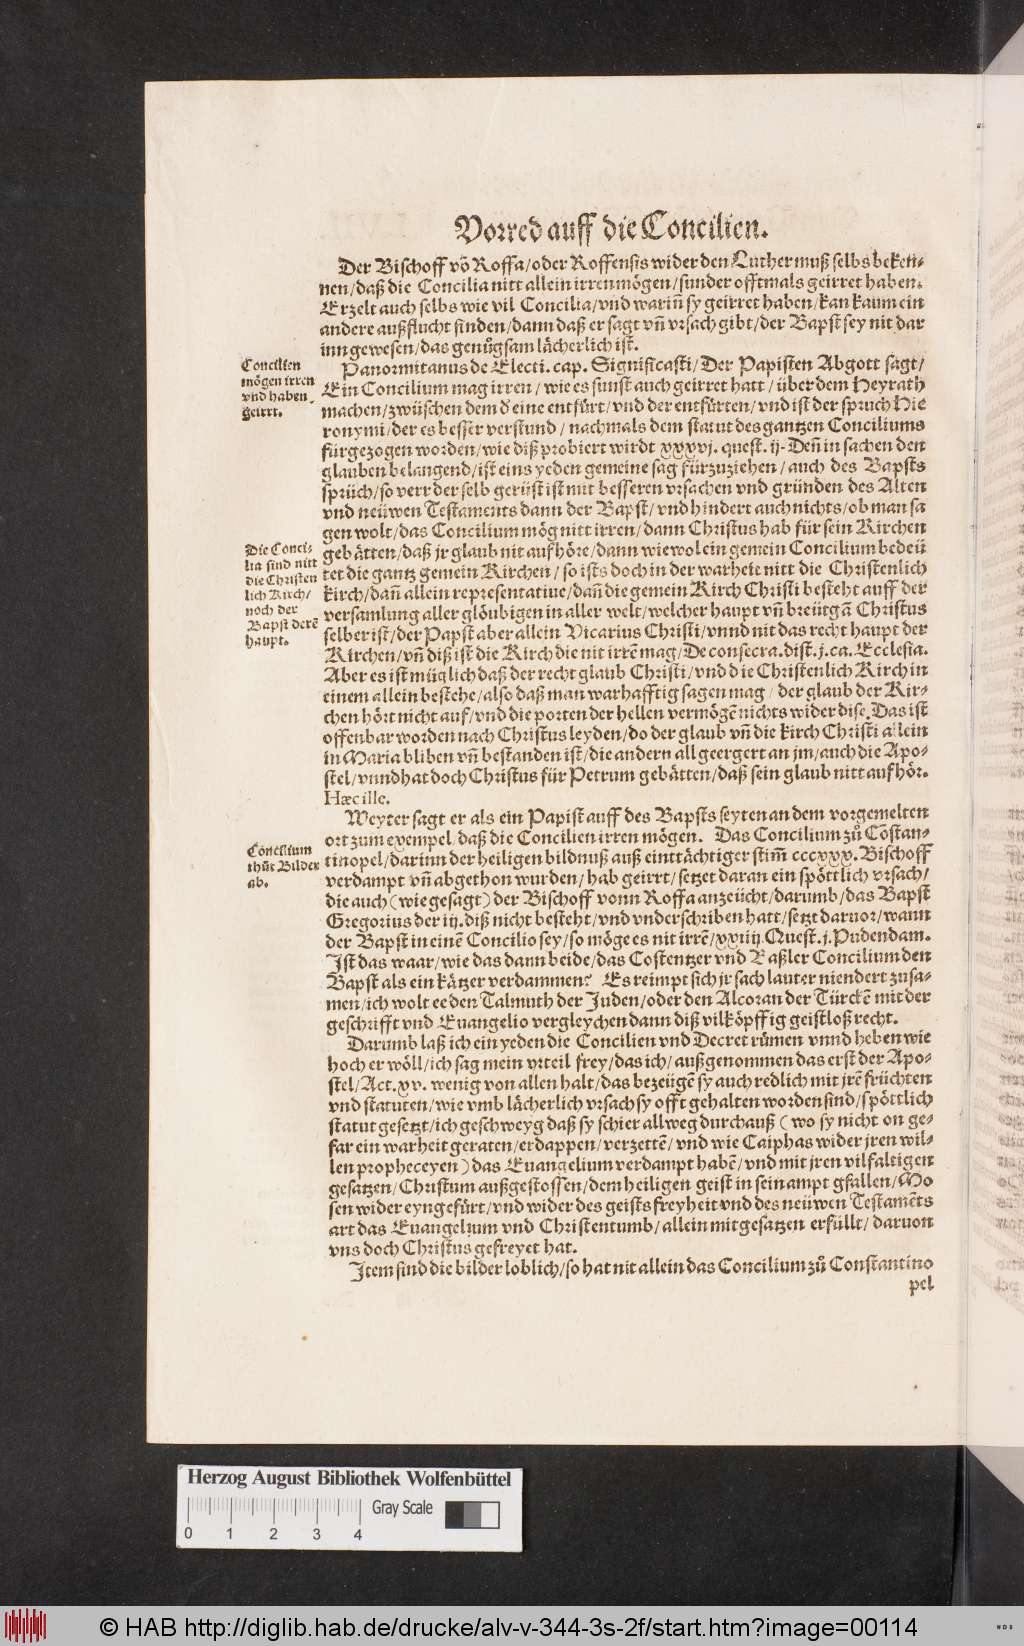 Vorred auff die Concilien.
Der Bischoff võ Roffa/oder Roffensis wider den Luther muß selbs beken-
nen/daß die Concilia nitt allein irren mögen/sunder offtmals geirret haben.
Erzelt auch selbs wie vil Concilia/vnd warin̄ sy geirret haben/kan kaum ein
andere außflucht finden/dann daß er sagt vn̄ vrsach gibt/der Bapst sey nit dar
inn gewesen/das genůgsam lächerlich ist.
Concilien
mögen irren
vnd haben
geirrt.
Panormitanus de Electi. cap. Significasti/Der Papisten Abgott sagt/
Ein Concilium mag irren/wie es sunst auch geirret hatt/über dem Heyrath
machen/zwüschen dem d̕ eine entfürt/vnd der entfürten/vnd ist der spruch Hie
ronymi/der es besser verstund/nachmals dem statut des gantzen Conciliums
fürgezogen worden/wie diß probiert wirdt xxxvj. quest. ij. Den̄ in sachen den
glauben belangend/ist eins yeden gemeine sag fürzuziehen/auch des Bapsts
sprüch/so verr der selb gerüst ist mit besseren vrsachen vnd gründen des Alten
vnd neüwen Testaments dann der Bapst/vnd hindert auch nichts/ob man sa
gen wolt/das Concilium mög nitt irren/dann Christus hab für sein Kirchen
Die Conci-
lia sind nitt
die Christen
lich Kirch/
noch der
Bapst derē
haupt.
gebätten/daß jr glaub nit aufhöre/dann wiewol ein gemein Concilium bedeü
tet die gantz gemein Kirchen/so ists doch in der warheit nitt die Christenlich
kirch/dan̄ allein representatiue/dan̄ die gemein Kirch Christi besteht auff der
versamlung aller glöubigen in aller welt/welcher haupt vn̄ breütgā Christus
selber ist/der Papst aber allein Vicarius Christi/vnnd nit das recht haupt der
Kirchen/vn̄ diß ist die Kirch die nit irrē mag/De consecra. dist. j. ca. Ecclesia.
Aber es ist müglich daß der recht glaub Christi/vnd die Christenlich Kirch in
einem allein bestehe/also daß man warhafftig sagen mag/der glaub der Kir-
chen hört nicht auf/vnd die porten der hellen vermögē nichts wider dise. Das ist
offenbar worden nach Christus leyden/do der glaub vn̄ die kirch Christi allein
in Maria bliben vn̄ bestanden ist/die andern all geergert an jm/auch die Apo-
stel/vnnd hat doch Christus für Petrum gebätten/daß sein glaub nitt aufhör.
Hæc ille.
Weyter sagt er als ein Papist auff des Bapsts seyten an dem vorgemelten
ort zum exempel/daß die Concilien irren mögen. Das Concilium zů Cōstan-
Concilium
thůt Bilder
ab.
tinopel/darinn der heiligen bildnuß auß einträchtiger stim̄ cccxxx. Bischoff
verdampt vn̄ abgethon wurden/hab geirrt/setzet daran ein spöttlich vrsach/
die auch (wie gesagt) der Bischoff vonn Roffa anzeücht/darumb/das Bapst
Gregorius der iij. diß nicht besteht/vnd vnderschriben hatt/setzt daruor/wann
der Bapst in einē Concilio sey/so möge es nit irrē/xxiiij. Quest. j. Pudendam.
Ist das waar/wie das dann beide/das Costentzer vnd Baßler Concilium den
Bapst als ein kätzer verdammen? Es reimpt sich jr sach lauter niendert zusa-
men/ich wolt ee den Talmuth der Juden/oder den Alcoran der Türckē mit der
geschrifft vnd Euangelio vergleychen dann diß vilköpffig geistloß recht.
Darumb laß ich ein yeden die Concilien vnd Decret růmen vnnd heben wie
hoch er wöll/ich sag mein vrteil frey/das ich/außgenommen das erst der Apo-
stel/Act. xv. wenig von allen halt/das bezeügē sy auch redlich mit jrē früchten
vnd statuten/wie vmb lächerlich vrsach sy offt gehalten worden sind/spöttlich
statut gesetzt/ich geschweyg daß sy schier allweg durchauß (wo sy nicht on ge-
far ein warheit geraten/erdappen/verzettē/vnd wie Caiphas wider jren wil-
len propheceyen) das Euangelium verdampt habē/vnd mit jren vilfaltigen
gesatzen/Christum außgestossen/dem heiligen geist in sein ampt gfallen/Mo
sen wider eyngefürt/vnd wider des geists freyheit vnd des neüwen Testamēts
art das Euangelium vnd Christentumb/allein mit gesatzen erfüllt/daruon
vns doch Christus gefreyet hat.
Item sind die bilder loblich/so hat nit allein das Concilium zů Constantino
pel
Herzog August Bibliothek Wolfenbüttel
Gray Scale
0 1 2 3 4
© HAB http://diglib.hab.de/drucke/alv-v-344-3s-2f/start.htm?image=00114